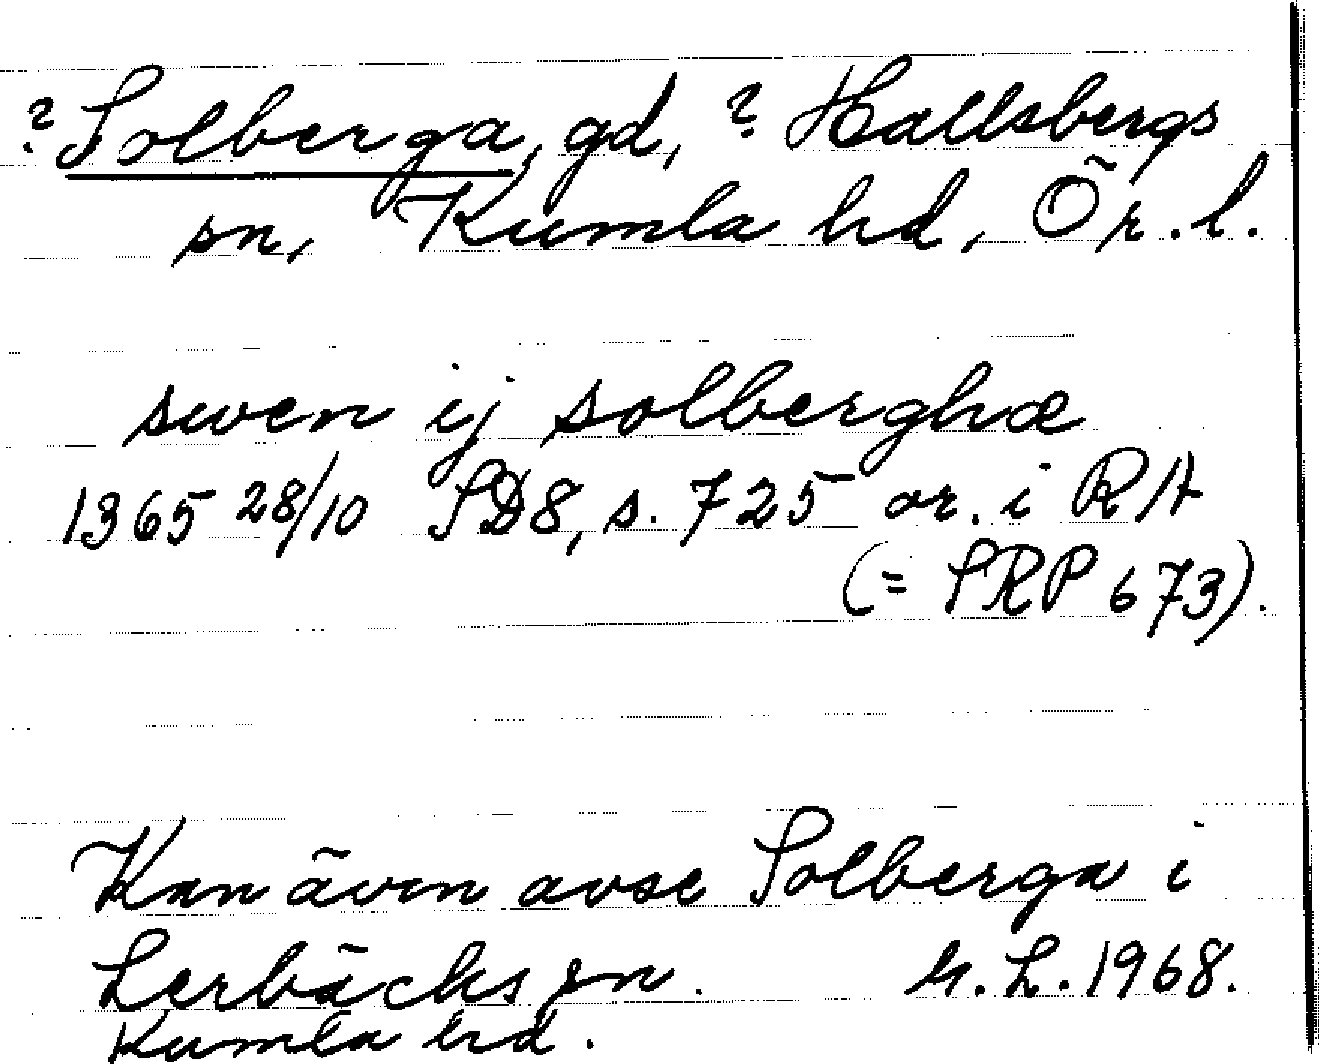 ? Solberga, gd, ? Hallsbergs
sn, Kumla hd, Ör. l.
swen ij solberghæ
1365 28/10 SD8, s. 725 or. i RA
(= SRP 673).
Kan även avse Solberga i
Lerbäcks sn. G. L. 1968.
Kumla hd.